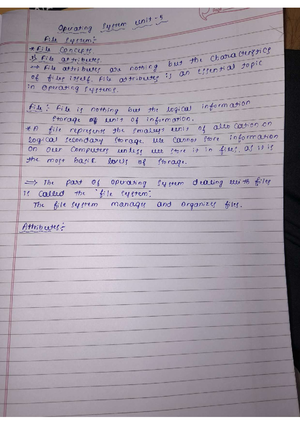 Operating System Unit-5
File System:
*File Concepts
1) File attributes
→ File attributes are nothing but the characteristics
of files itself. File attributes is an essential topic
in operating systems.
File:- File is nothing but the logical information
Storage of unit of information.
*A file represents the smallest unit of allocation on
logical secondary storage. We cannot store information
on our computers unless we store it in files, as it is
the most basic levels of storage.
=> The part of operating system dealing with files
is called the 'file system'.
The file system manages and organizes files.
Attributes:-